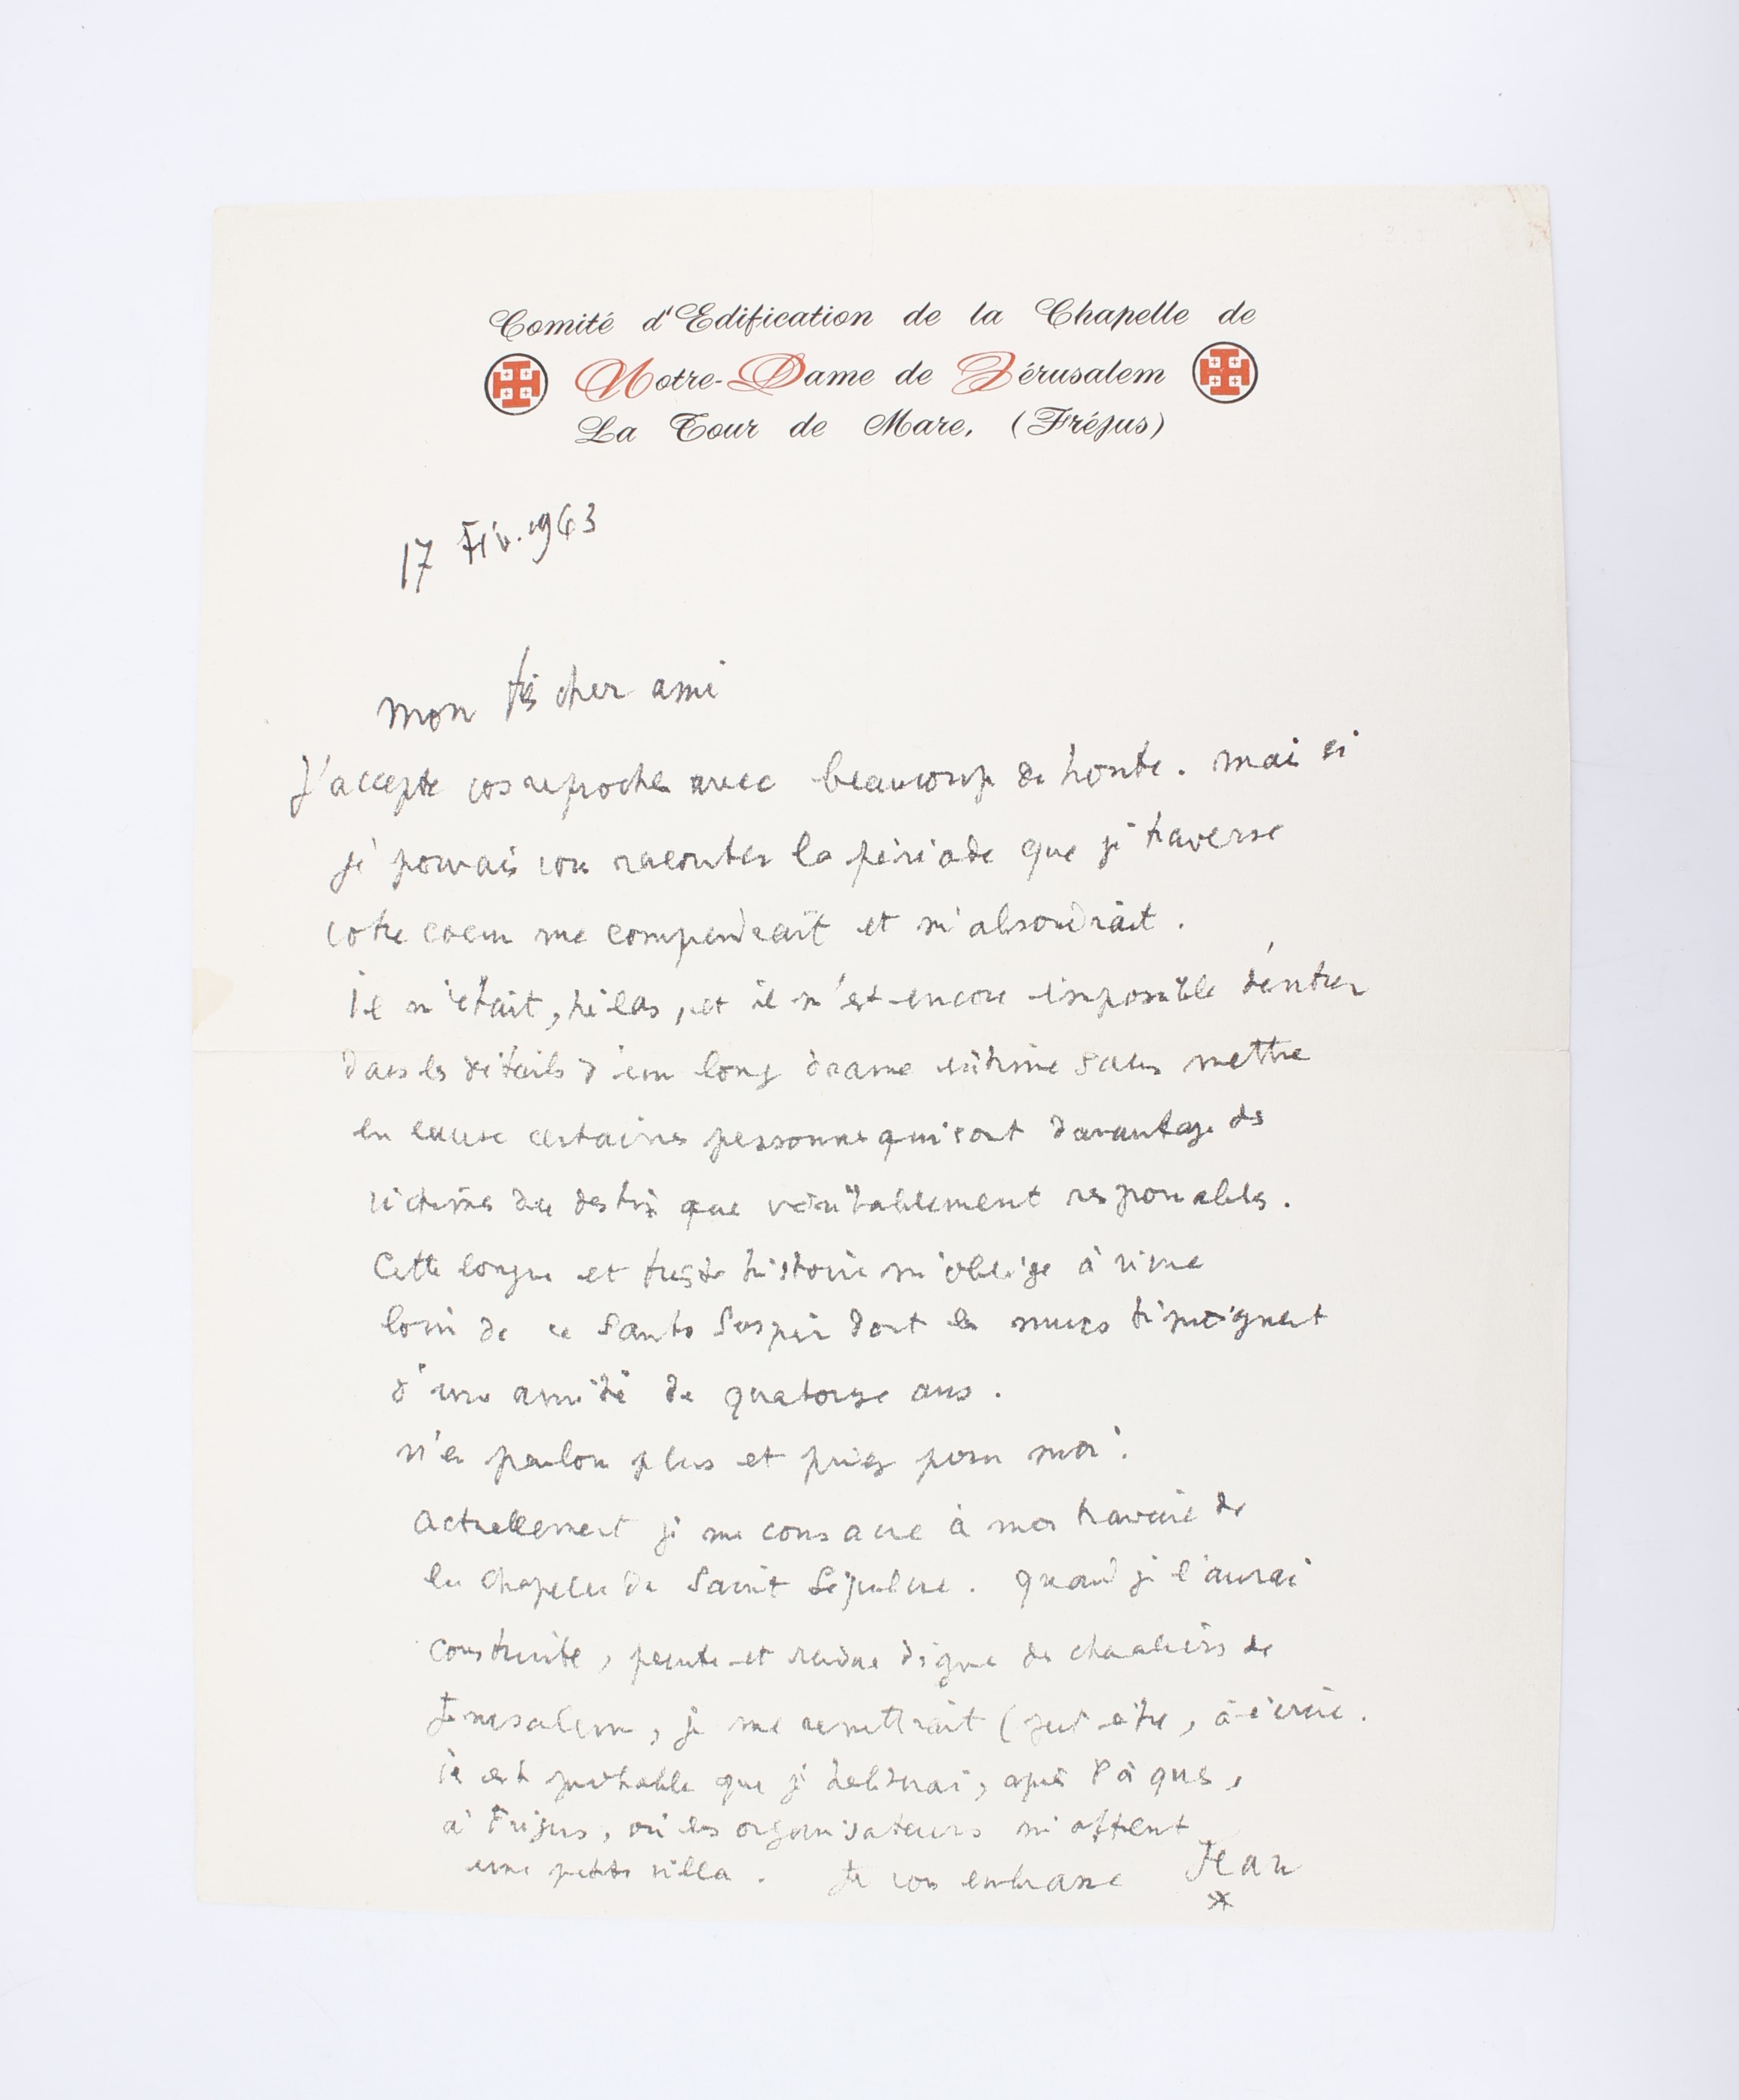 Comité d'Edification de la Chapelle de
Notre-Dame de Jérusalem
La Tour de Mare, (Fréjus)
17 Fév. 1963
mon très cher ami
J'accepte vos reproches avec beaucoup de honte. mais si
je pouvais vous raconter la période que je traverse
votre coeur me comprendrait et m'absoudrait.
Il m'était, hélas, et il m'est encore impossible d'entrer
dans les détails d'un long drame intime sans mettre
en cause certaines personnes qui sont davantage des
victimes du destin que véritablement responsables.
Cette longue et triste histoire m'oblige à vivre
loin de ce Santo Sospir dont les murs témoignent
d'une amitié de quatorze ans.
N'en parlons plus et priez pour moi.
Actuellement je me consacre à mes travaux de
la chapelle du Saint Sépulcre. Quand je l'aurai
construite, peinte et rendue digne des chevaliers de
Jérusalem, je me remettrait (peut-être, à écrire.
Il est probable que j'habiterai, après Pâques,
à Fréjus, où les organisateurs m'offrent
une petite villa. Je vous embrasse Jean
*